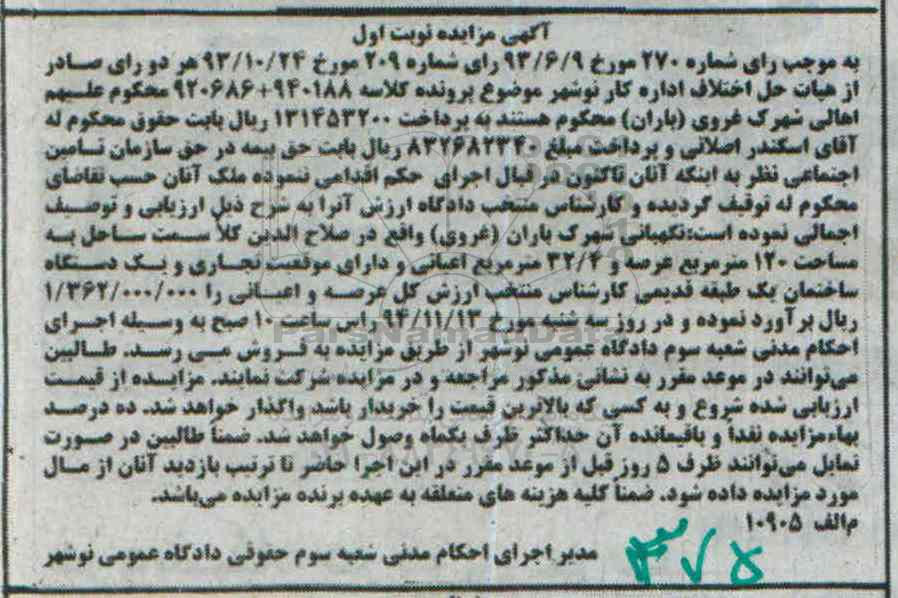 آگهی مزایده نوبت اول
به موجب رای شماره ۲۷۰ مورخ ۹۳/۶/۹ رای شماره ۲۰۹ مورخ ۹۳/۱۰/۲۴ هر دو رای صادر
از هیات حل اختلاف اداره کار نوشهر موضوع پرونده کلاسه ۹۴۰۱۸۸+۹۲۰۶۸۶ محکوم علیهم
اهالی شهرک غروی (باران) محکوم هستند به پرداخت ۱۳۱۴۵۳۲۰۰ ریال بابت حقوق محکوم له
آقای اسکندر اصلانی و پرداخت مبلغ ۸۳۲۶۸۲۳۴۰ ریال بابت حق بیمه در حق سازمان تامین
اجتماعی نظر به اینکه آنان تاکنون در قبال اجرای حکم اقدامی ننموده ملک آنان حسب تقاضای
محکوم له توقیف گردیده و کارشناس منتخب دادگاه ارزش آنرا به شرح ذیل ارزیابی و توصیف
اجمالی نموده است:نگهبانی شهرک باران (غروی) واقع در صلاح الدین کلا سمت ساحل به
مساحت ۱۲۰ مترمربع عرصه و ۳۲/۴ مترمربع اعیانی و دارای موقعیت تجاری و یک دستگاه
ساختمان یک طبقه قدیمی کارشناس منتخب ارزش کل عرصه و اعیانی را ۱/۳۶۲/۰۰۰/۰۰۰
ریال برآورد نموده و در روز سه شنبه مورخ ۹۴/۱۱/۱۳ راس ساعت ۱۰ صبح به وسیله اجرای
احکام مدنی شعبه سوم دادگاه عمومی نوشهر از طریق مزایده به فروش می رسد. طالبین
می‌توانند در موعد مقرر به نشانی مذکور مراجعه و در مزایده شرکت نمایند. مزایده از قیمت
ارزیابی شده شروع و به کسی که بالاترین قیمت را خریدار باشد واگذار خواهد شد. ده درصد
بهاءمزایده نقداً و باقیمانده آن حداکثر ظرف یکماه وصول خواهد شد. ضمناً طالبین در صورت
تمایل می‌توانند ظرف ۵ روز قبل از موعد مقرر در این اجرا حاضر تا ترتیب بازدید آنان از مال
مورد مزایده داده شود. ضمناً کلیه هزینه های متعلقه به عهده برنده مزایده می‌باشد.
م/الف ۱۰۹۰۵
مدیر اجرای احکام مدنی شعبه سوم حقوقی دادگاه عمومی نوشهر
۳۷۵
ParsNamadData